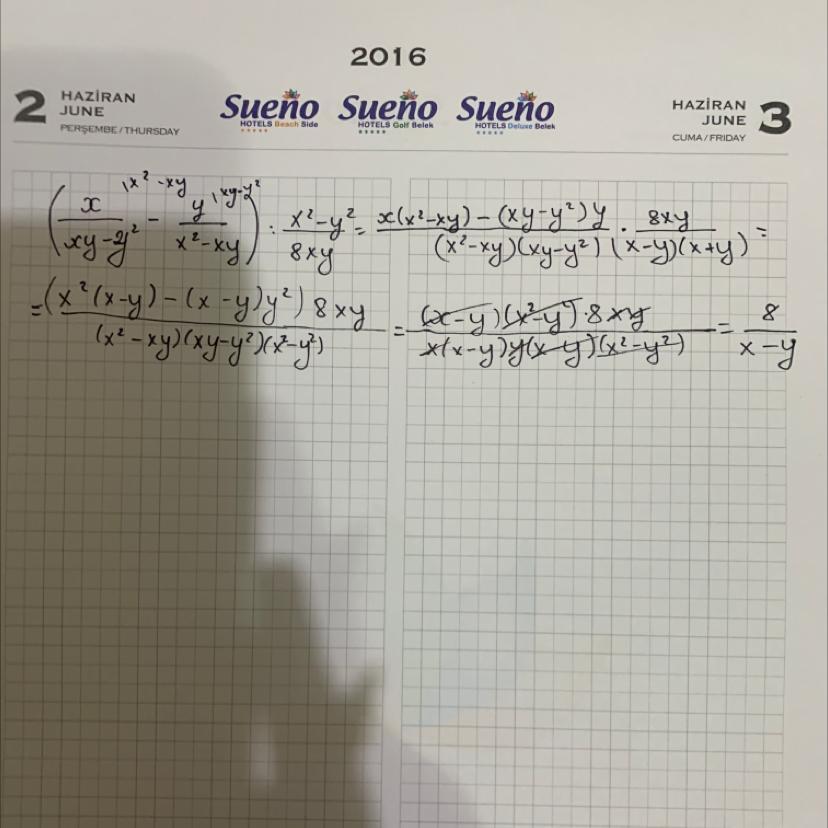 2016
2 HAZİRAN
JUNE
PERŞEMBE / THURSDAY
Sueño Sueño Sueño
HOTELS Beach Side HOTELS Golf Belek HOTELS Deluxe Belek
HAZİRAN 3
JUNE
CUMA / FRIDAY
(x/(xy-y²) \x²-xy - y/(x²-xy) \xy-y²) : (x²-y²)/(8xy) = (x(x²-xy) - (xy-y²)y)/((x²-xy)(xy-y²)) · 8xy/((x-y)(x+y)) =
= ((x²(x-y) - (x-y)y²) 8xy)/((x²-xy)(xy-y²)(x²-y²)) = ((x-y)(x²-y²)·8xy)/(x(x-y)y(x-y)(x²-y²)) = 8/(x-y)